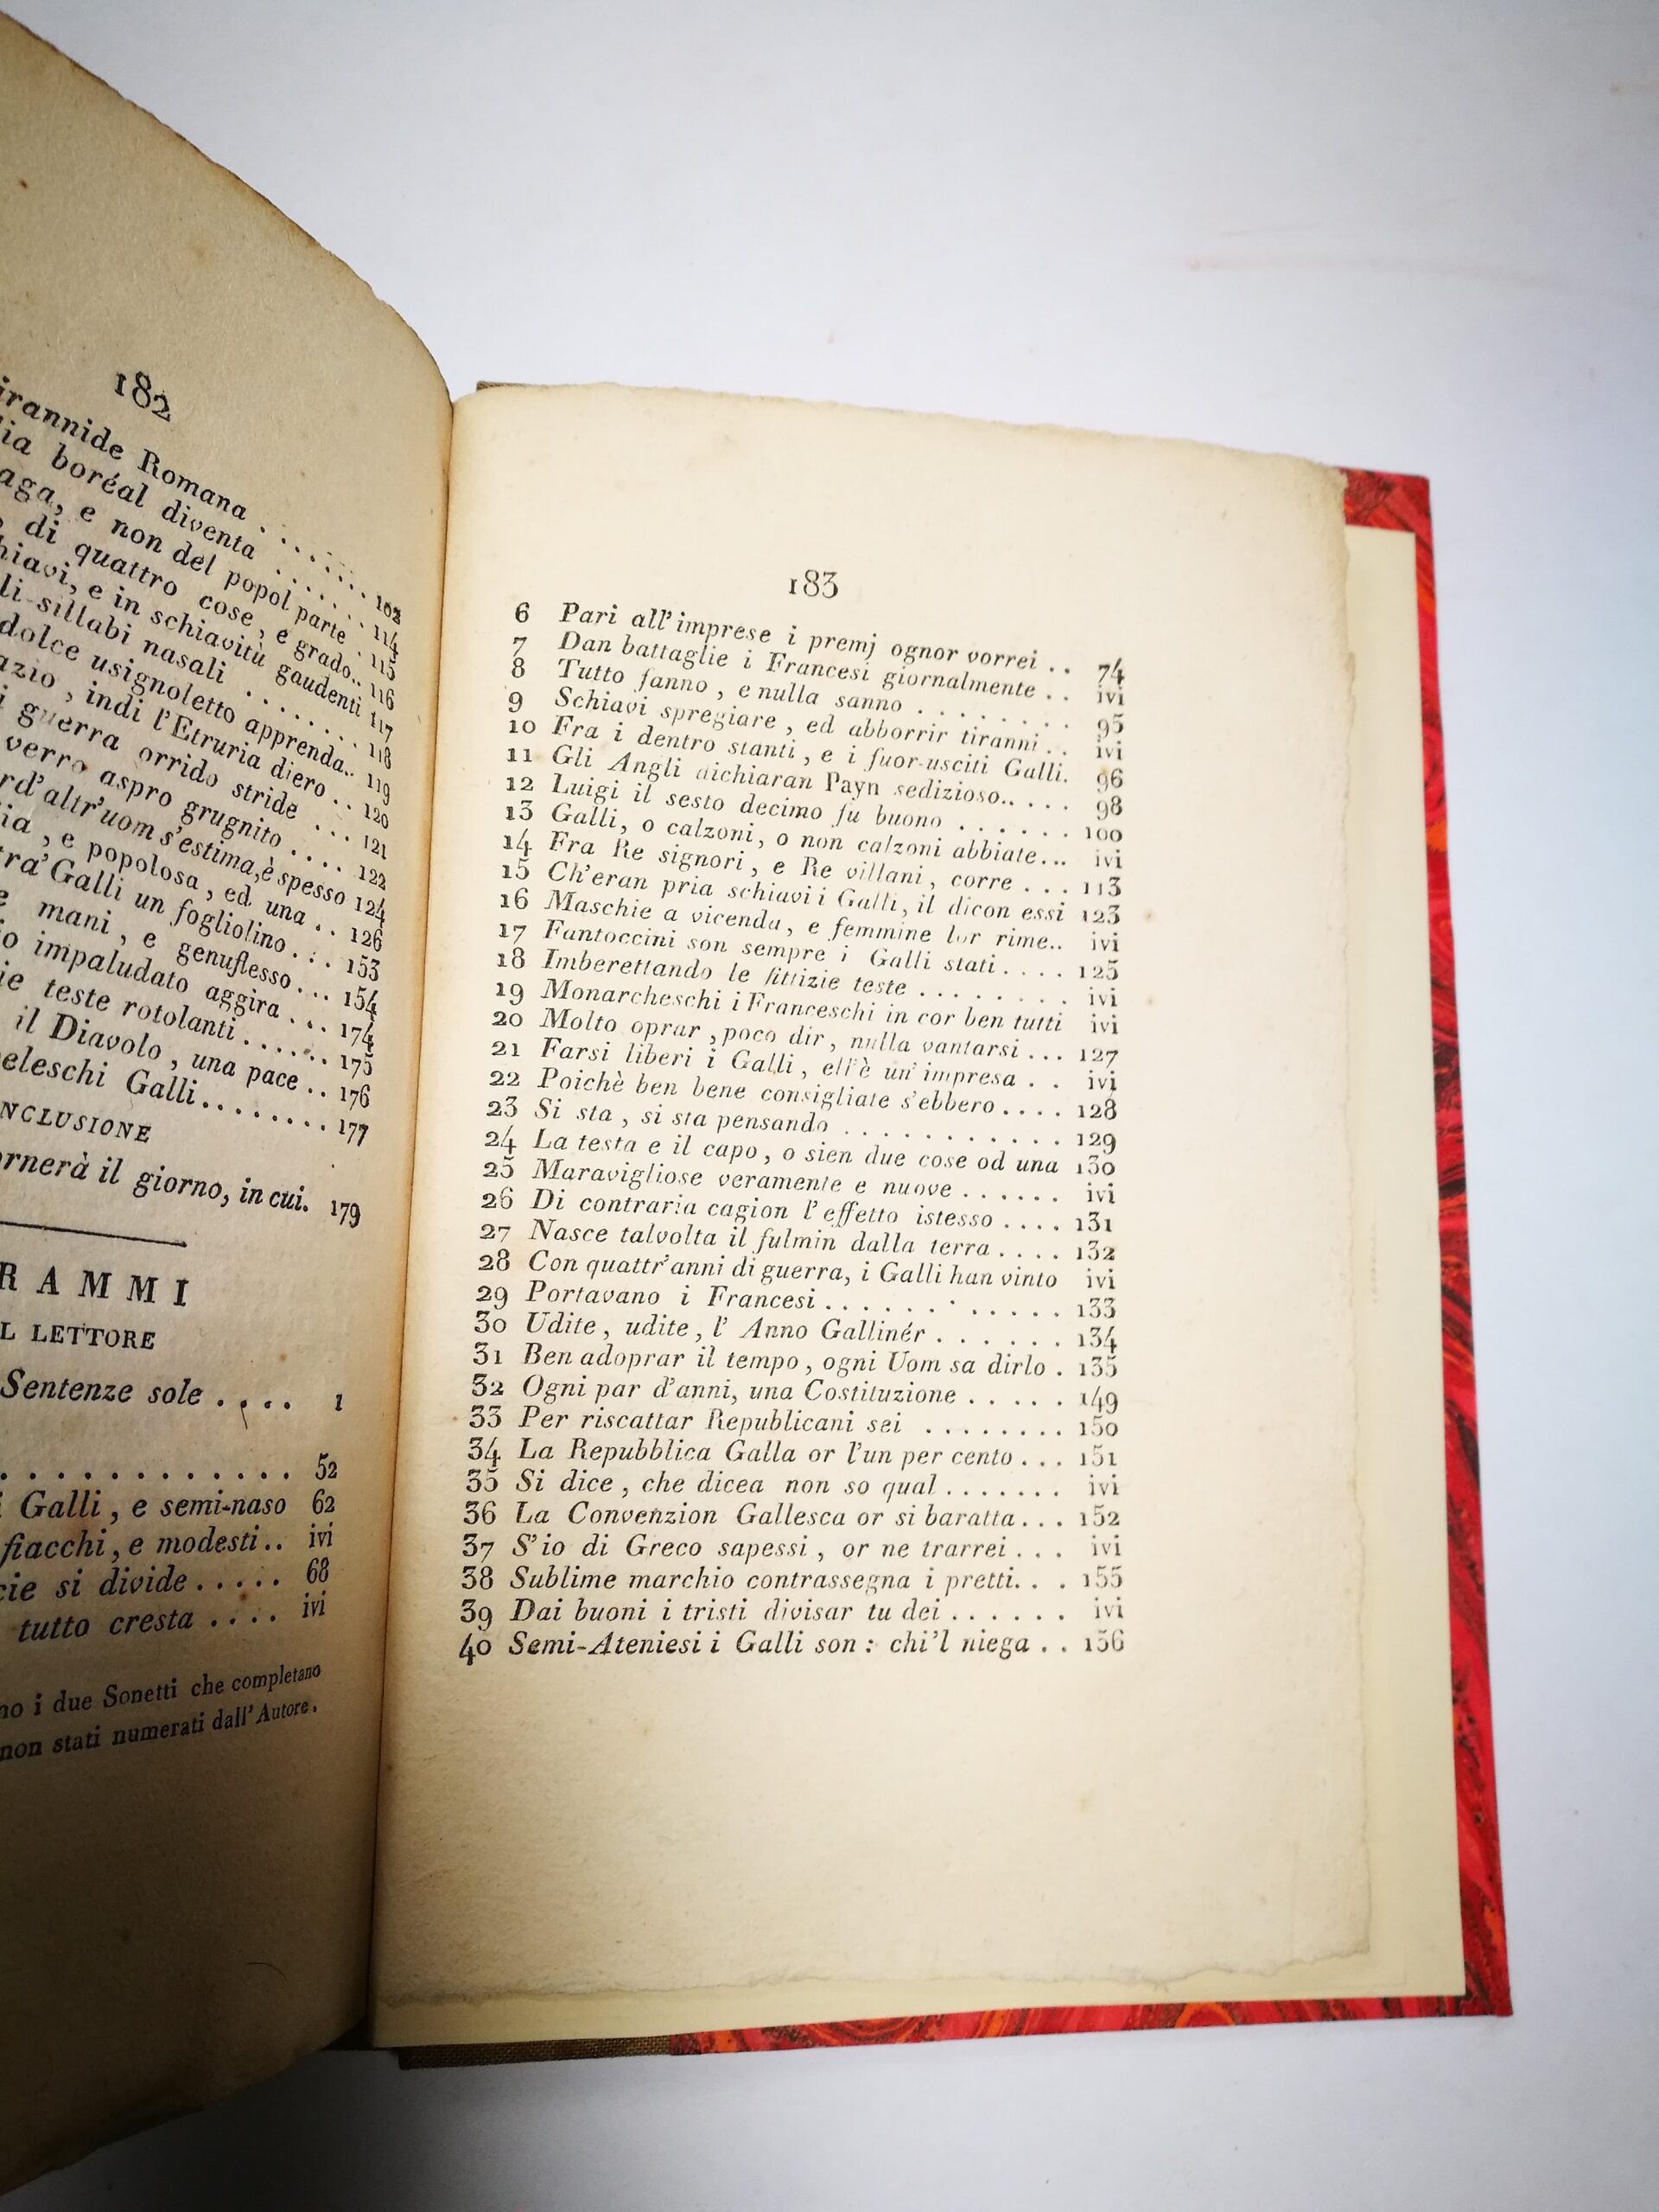 182
irannide Romana . . . . . . . 102
ia boréal diventa . . . . . . 114
aga, e non del popol parte . 115
di quattro cose, e grado.. 116
hiavi, e in schiavitù gaudenti 117
li-sillabi nasali . . . . . . . 118
dolce usignoletto apprenda.. 119
azio, indi l'Etruria diero . . 120
i guerra orrido stride . . . 121
verro aspro grugnito . . . . 122
rd'altr'uom s'estima, è spesso 124
ia, e popolosa, ed una . . 126
tra' Galli un fogliolino . . . 153
e mani, e genuflesso . . . 154
o impaludato aggira . . . 174
ie teste rotolanti . . . . . . 175
il Diavolo, una pace . . 176
eleschi Galli . . . . . . . . 177
NCLUSIONE
ornerà il giorno, in cui. 179
RAMMI
L LETTORE
Sentenze sole . . . . 1
. . . . . . . . . . . . . 52
i Galli, e semi-naso 62
fiacchi, e modesti . . ivi
cie si divide . . . . . 68
tutto cresta . . . . ivi
no i due Sonetti che completano
non stati numerati dall'Autore.
183
6 Pari all'imprese i premj ognor vorrei . . 74
7 Dan battaglie i Francesi giornalmente . . ivi
8 Tutto fanno, e nulla sanno . . . . . . . . 95
9 Schiavi spregiare, ed abborrir tiranni . . ivi
10 Fra i dentro stanti, e i fuor-usciti Galli. 96
11 Gli Angli dichiaran Payn sedizioso . . . . . 98
12 Luigi il sesto decimo fu buono . . . . . . 100
13 Galli, o calzoni, o non calzoni abbiate . . . ivi
14 Fra Re signori, e Re villani, corre . . . 113
15 Ch'eran pria schiavi i Galli, il dicon essi 123
16 Maschie a vicenda, e femmine lor rime.. ivi
17 Fantoccini son sempre i Galli stati . . . . 125
18 Imberettando le fittizie teste . . . . . . . . ivi
19 Monarcheschi i Franceschi in cor ben tutti ivi
20 Molto oprar, poco dir, nulla vantarsi . . . 127
21 Farsi liberi i Galli, ell'è un'impresa . . ivi
22 Poichè ben bene consigliate s'ebbero . . . . 128
23 Si sta, si sta pensando . . . . . . . . . . . 129
24 La testa e il capo, o sien due cose od una 130
25 Maravigliose veramente e nuove . . . . . . ivi
26 Di contraria cagion l'effetto istesso . . . . 131
27 Nasce talvolta il fulmin dalla terra . . . . 132
28 Con quattr'anni di guerra, i Galli han vinto ivi
29 Portavano i Francesi . . . . . . . . . . . . 133
30 Udite, udite, l'Anno Gallinér . . . . . . 134
31 Ben adoprar il tempo, ogni Uom sa dirlo . 135
32 Ogni par d'anni, una Costituzione . . . . . 149
33 Per riscattar Republicani sei . . . . . . . . 150
34 La Repubblica Galla or l'un per cento . . . 151
35 Si dice, che dicea non so qual . . . . . . . ivi
36 La Convenzion Gallesca or si baratta . . . 152
37 S'io di Greco sapessi, or ne trarrei . . . ivi
38 Sublime marchio contrassegna i pretti. . . 155
39 Dai buoni i tristi divisar tu dei . . . . . . ivi
40 Semi-Ateniesi i Galli son: chi'l niega . . 156